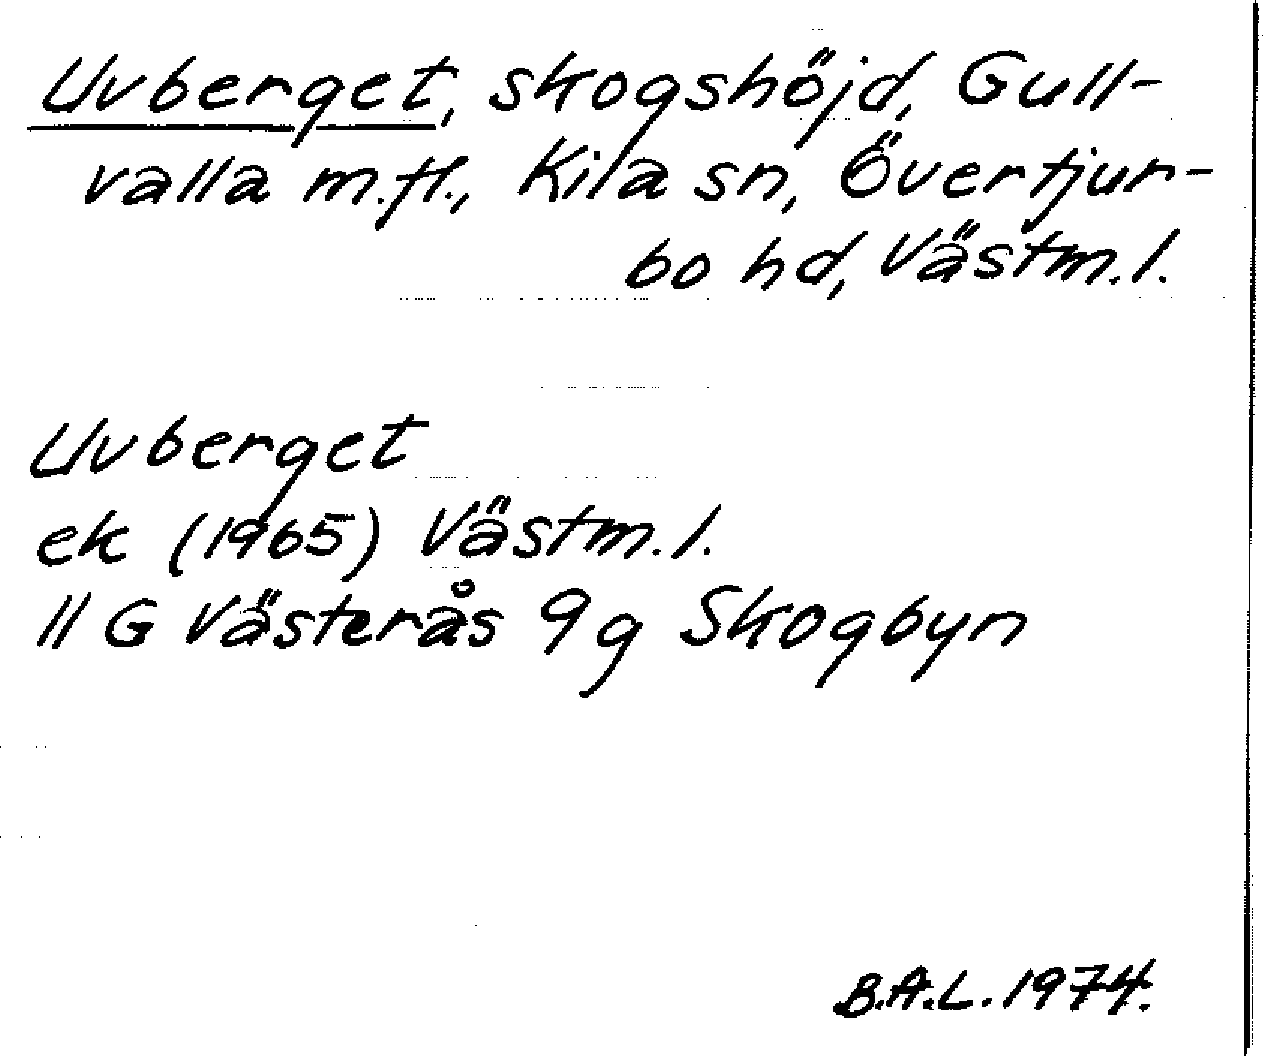 Uvberget, skogshöjd, Gull-
valla m.fl., Kila sn, Övertjur-
bo hd, Västm.l.
Uvberget
ek (1965) Västm.l.
11 G Västerås 9g Skogbyn
B.A.L. 1974.